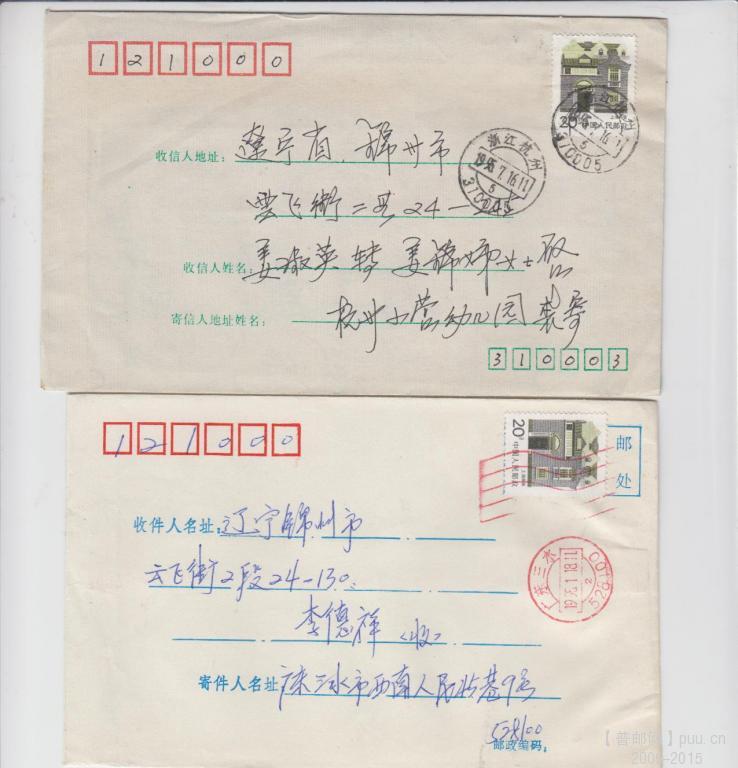 121000
20 中国人民邮政
浙江杭州
1995.7.16.11
5
310005
收信人地址: 辽宁省 锦州市
云飞街二段24—
收信人姓名: 姜淑英 转 姜锦 女士 启
寄信人地址姓名: 杭州小营幼儿园 裘寄
310003
121000
20分 中国人民邮政
邮
处
收件人名址: 辽宁锦州市
云飞街2段24-130
李德祥(收)
广东三水
1995.1.18.11
2
寄件人名址 广东三水市西南人民 巷9号
528100
邮政编码:
【普邮网】puu.cn
2005-2015